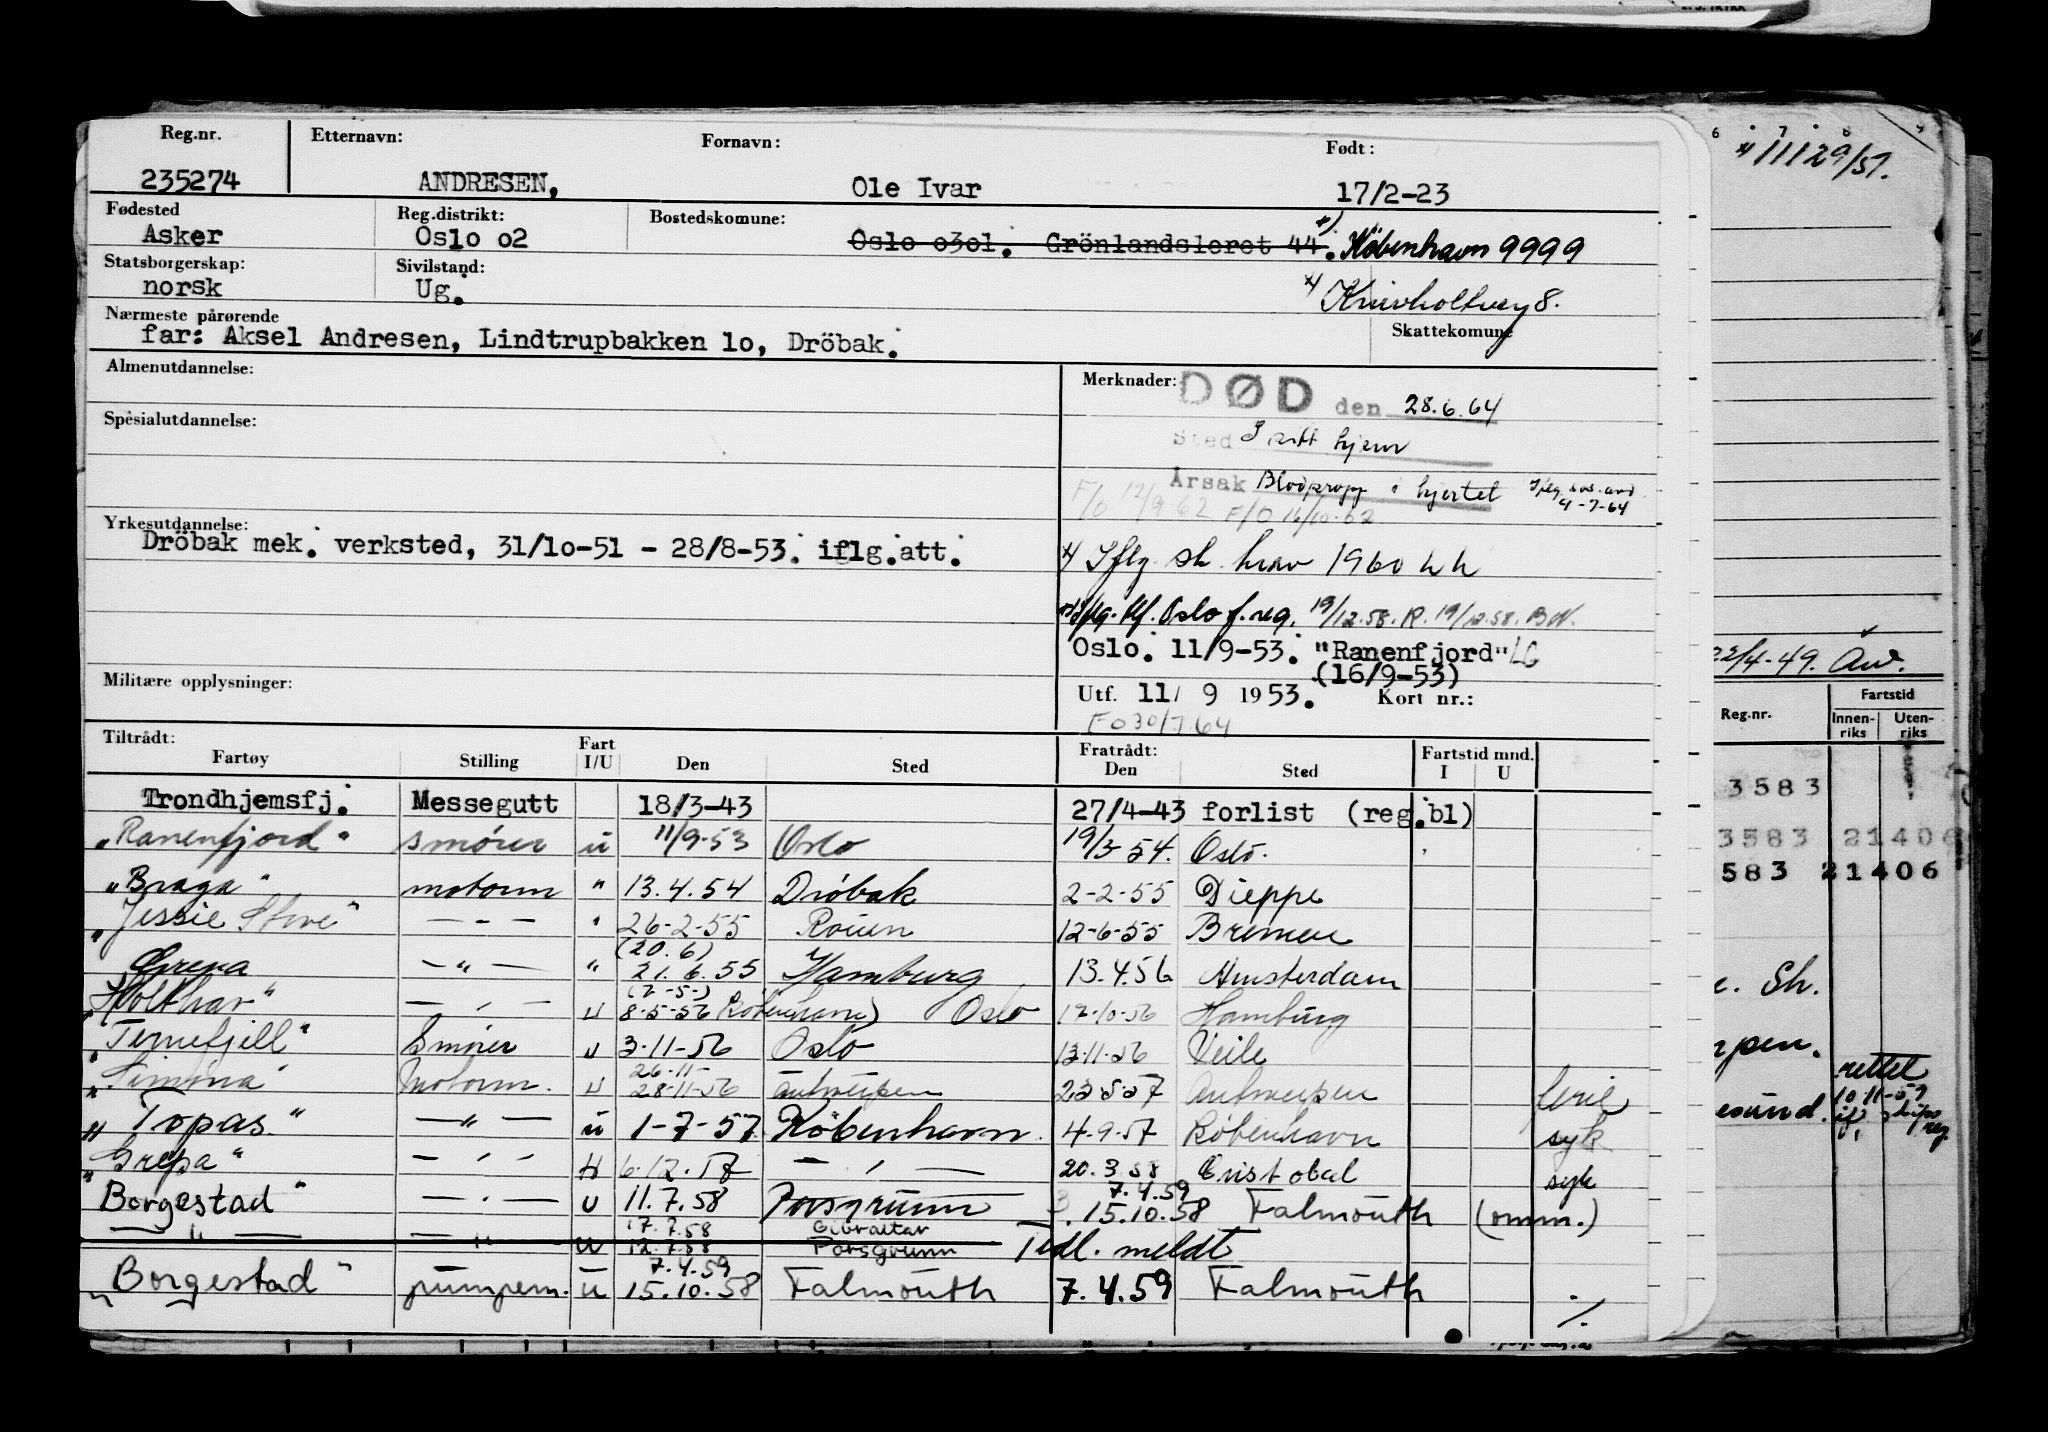 Reg.nr. Etternavn: Fornavn: Født:
235274 ANDRESEN, Ole Ivar 17/2-23
Fødested Reg.distrikt: Bostedskomune:
Asker Oslo o2 Oslo o3o1. Grönlandsleret 44. København 9999
Statsborgerskap: Sivilstand:
norsk Ug. 8.
Nærmeste pårørende Skattekomune
far: Aksel Andresen, Lindtrupbakken lo, Dröbak.
Almenutdannelse: Merknader: DØD den 28.6.64
Spesialutdannelse: Sted I sitt hjem
Årsak Blodpropp i hjertet
4-7-64
F/O 12/9-62 F/O 16/10-62
Yrkesutdannelse:
Dröbak mek. verksted, 31/1o-51 - 28/8-53. iflg.att.
x) Iflg. sk. krav 1960
Oslo f.reg. 19/12.58. R. 19/12.58. BN.
Oslo. 11/9-53. "Ranenfjord" LG
(16/9-53)
Militære opplysninger: Utf. 11/ 9 1953. Kort nr.:
FO 30/7.64
Tiltrådt: Fart Fratrådt: Fartstid mnd.
Fartøy Stilling I/U Den Sted Den Sted I U
Trondhjemsfj. Messegutt 18/3-43 27/4-43 forlist (reg.bl)
"Ranenfjord" smører u 11/9-53 Oslo 19/3 54. Oslo.
"Braga" motorm " 13.4.54 Drøbak 2-2-55 Dieppe
"Jessie Stove" - - - " 26-2-55 Rouen 12-6-55 Bremen
(20.6)
Grena - " - " 21.6.55 Hamburg 13.4.56 Amsterdam
(2-5-)
"Holthav" - , - u 8-5-56 København) Oslo 12-10-56 Hamburg
"Ternefjell" Smører u 3-11-56 Oslo 13-11-56 Veile
26-11-
"Simona" Motorm. u 28-11-56 Antwerpen 23-5-57 Antwerpen ferie
"Topas" - " - u 1-7-57 København. 4.9.57 København syk
"Grepa" - , - 6.12.57 - , - 20.3.58 Cristobal syk
7.4.59
"Borgestad" - . - u 11.7.58 Porsgrunn 15.10.58 Falmouth (omm.)
17.7.58 Gibraltar
- " - - " - u 12.7.58 Porsgrunn Tidl. meldt
7.4.59
"Borgestad" pumpem. u 15.10.58 Falmouth 7.4.59 Falmouth ./.
6 7 8 9
x) 11129/57.
22/4-49.
Reg.nr. Fartstid
Innen-riks Uten-riks
3583
3583 21406
583 21406
Sh.
rettet
10.11-59